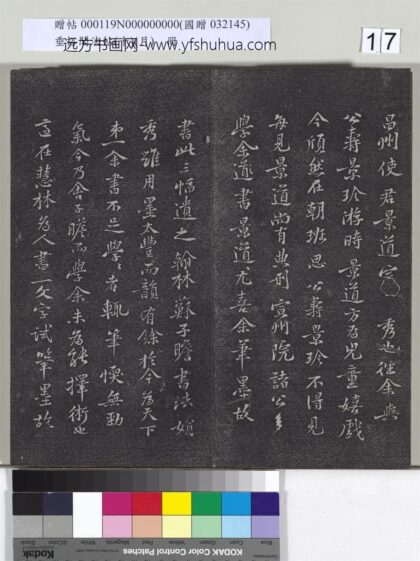 贈帖 000119N000000000(國贈 032145)
远方书画网-www.yfshuhua.com
17
昌州使君景道宗 秀也往余與
公壽景珍游時景道方為兒童嬉戲
今頎然在朝班思公壽景珍不得見
每見景道尚有典刑宣州院諸公多
學余書景道尤喜余筆墨故
書此三幅遺之翰林蘇子瞻書法娟
秀雖用墨太豐而韻有餘於今為天下
第一余書不足學學者輒筆愞無勁
氣今乃舍子瞻而學余未為能擇術也
適在慧林為人書一文字試筆墨故
KODAK Color Control Patches
Kodak
Blue
Cyan
Green
Yellow
Red
Magenta
White
3/Color
Black